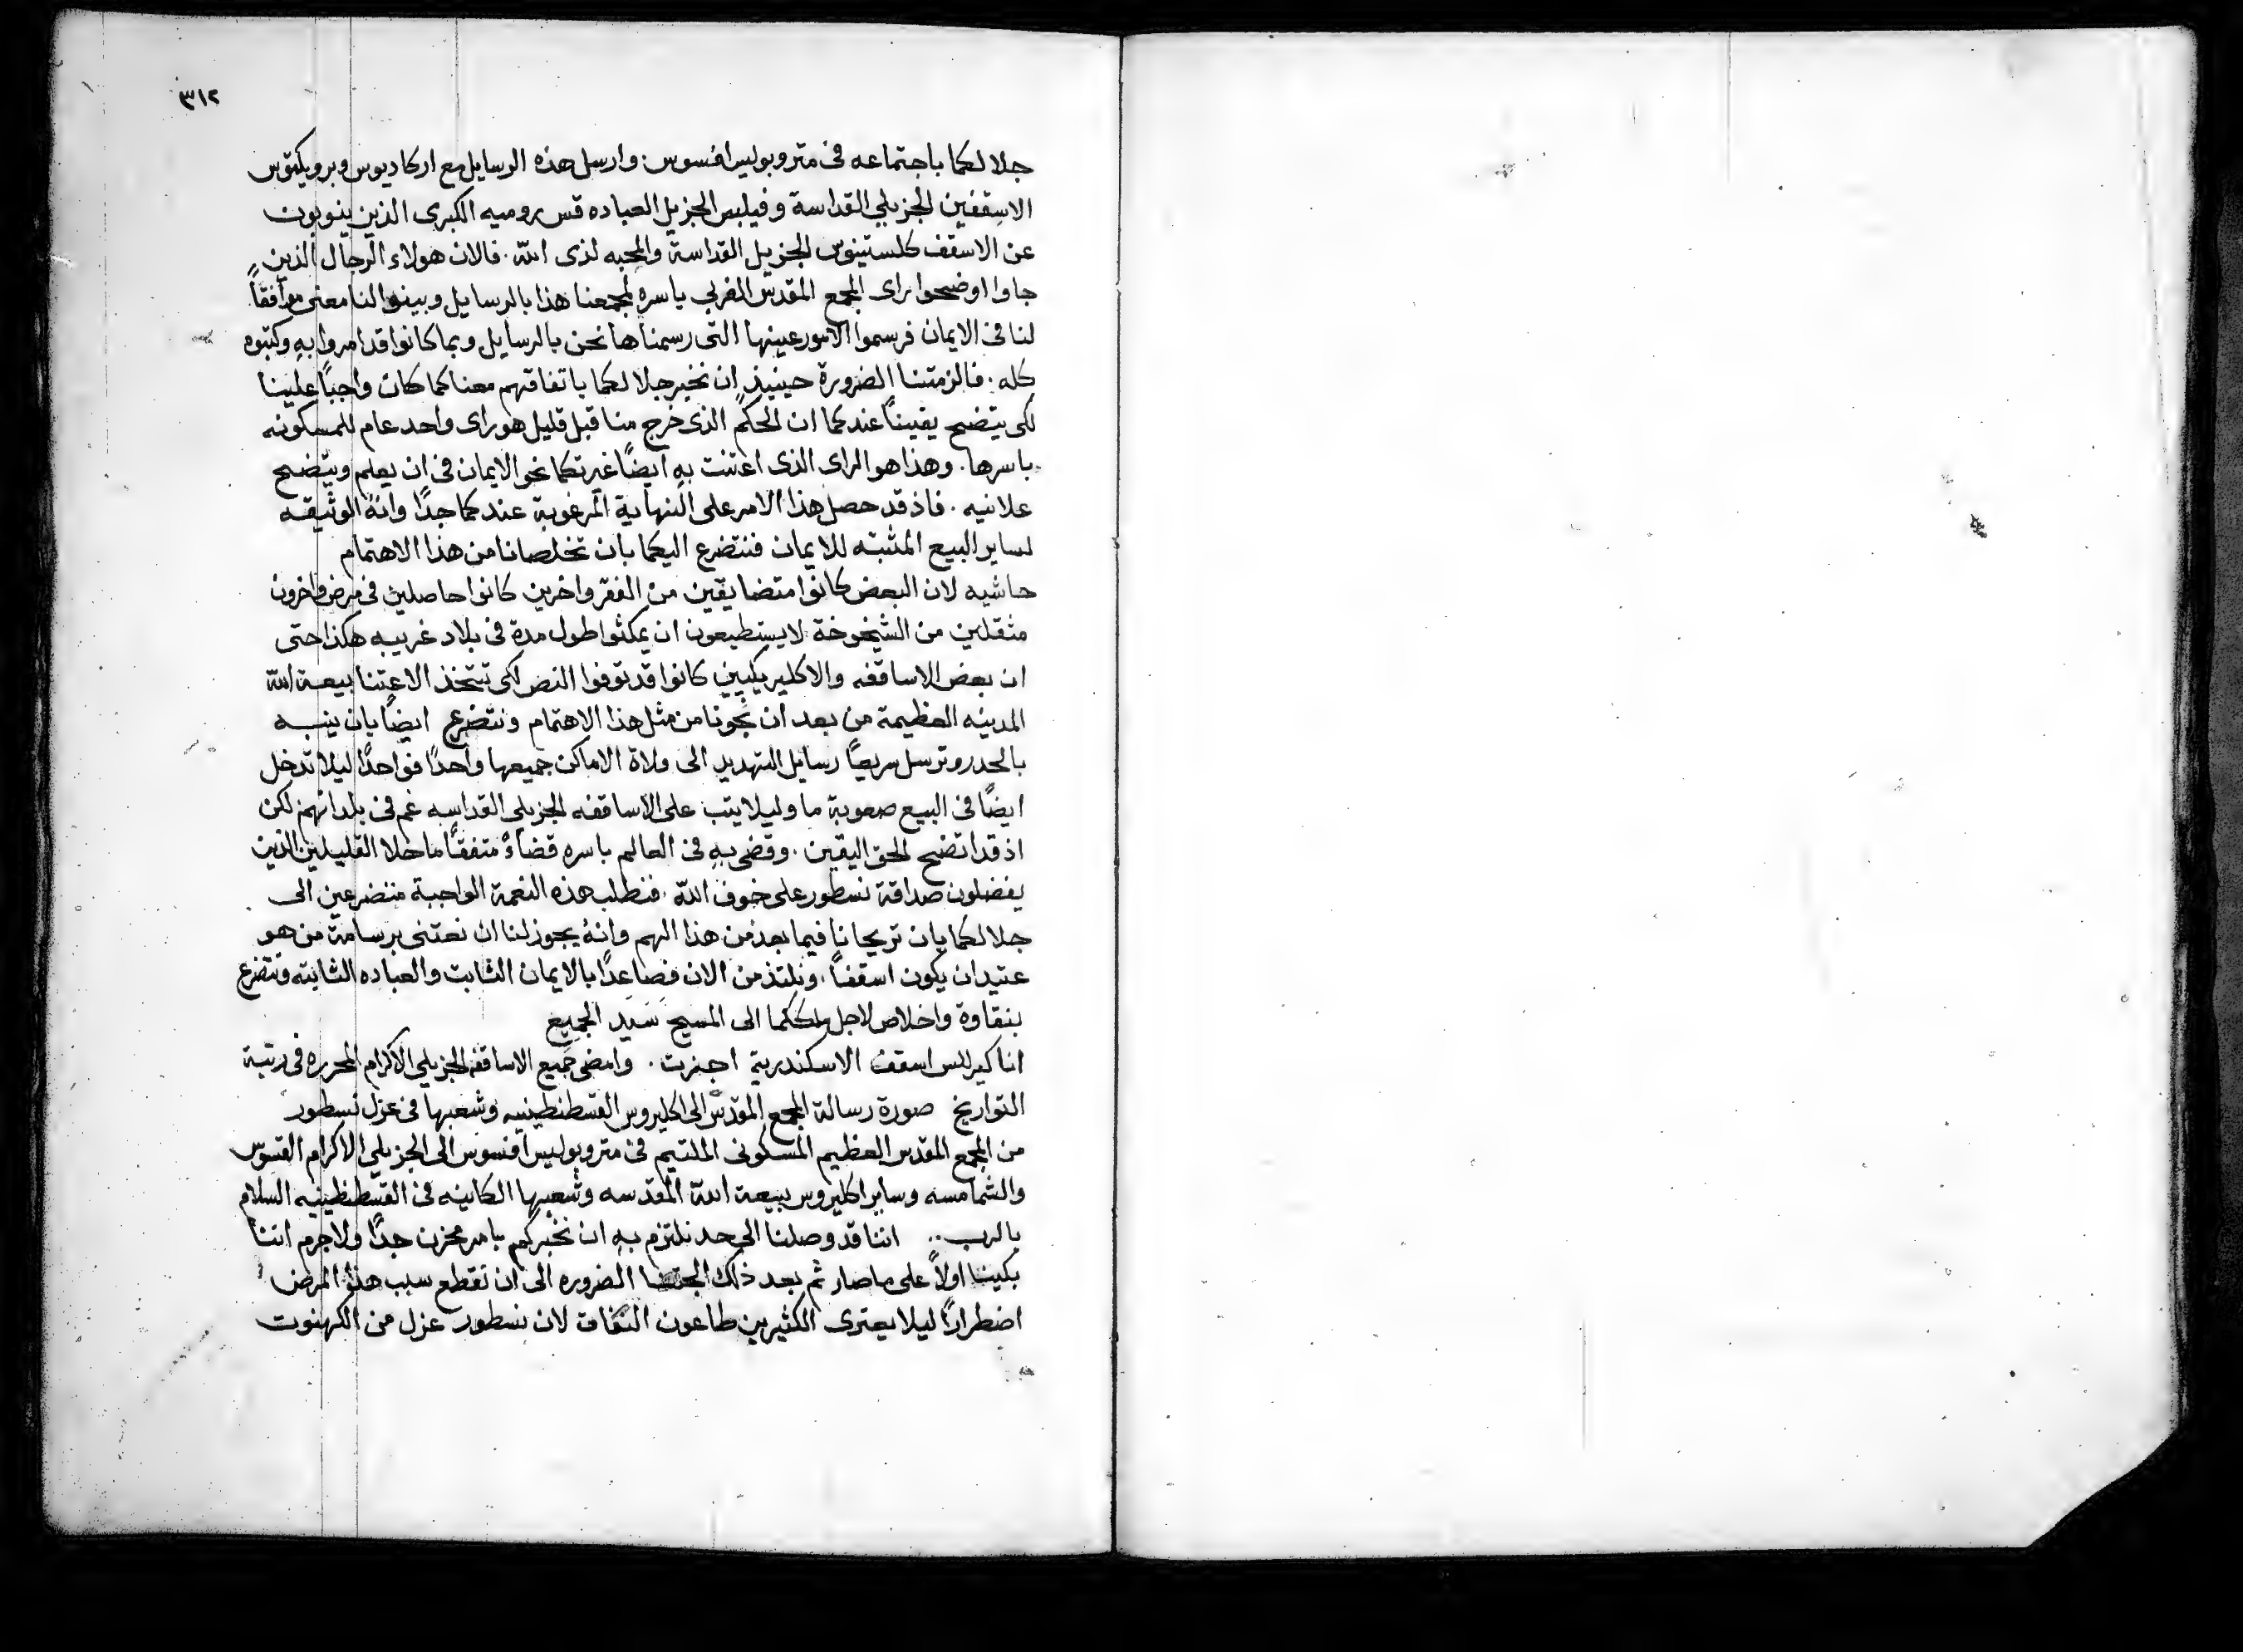 ٣١٢
جلالكما باجتماعه فى متروبوليس افسوس. وارسل هذه الرسايل مع اركاديوس وبرويكتوس
الاسقفين الجزيلي القداسة وفيلبس الجزيل العباده قس روميه الكبرى الذين ينوبون
عن الاسقف كلستينوس الجزيل القداسة والمحبه لذى الله. فالان هولاء الرجال الذين
جاوا اوضحوا راى المجمع المقدس الغربي باسره لمجمعنا هذا بالرسايل وبينوا لنا معنى موافقاً
لنا فى الايمان فرسموا الامور عينها التى رسمناها نحن بالرسايل وبما كانوا قد امروا به وكتبوه
كله. فالزمتنا الضرورة حينيذ ان نخبر جلالكما باتفاقهم معنا كما كان واجباً علينا
لكى يتضح يقيناً عندكما ان الحكم الذى خرج منا قبل قليل هو راى واحد عام للمسكونه
باسرها. وهذا هو الراى الذى اعتنت به ايضاً غيرتكما نحو الايمان فى ان يعلم ويتضح
علانيه. فاذ قد حصل هذا الامر على النهاية المرغوبة عندكما جداً وانه الوثيقه
لساير البيع المثبته للايمان فنتضرع اليكما بان تخلصانا من هذا الاهتمام
حاشيه لان البعض كانوا متضايقين من الفقر واخرين كانوا حاصلين فى مرض واخرون
مثقلين من الشيخوخة لا يستطيعون ان يمكثوا طول مدة فى بلاد غريبه هكذا حتى
ان بعض الاساقفه والاكليريكيين كانوا قد توفوا النص لكى تتخذ الاعتنا ببيعة الله
المدينه العظيمة من بعد ان نجونا من مثل هذا الاهتمام ونتضرع ايضاً بان ينبه
بالحدر وترسل سريعاً رسايل التهديد الى ولاة الاماكن جميعها واحداً فواحداً ليلا تدخل
ايضاً فى البيع صعوبة ما وليلا يتب على الاساقفه الجزيلى القداسه غم فى بلدانهم لكن
اذ قد اتضح الحق اليقين. وقضى به فى العالم باسره قضاءً متفقاً ما خلا القليلين الذين
يفضلون صداقة نسطور على خوف الله. فنطلب هذه النعمة الواجبة متضرعين الى
جلالكما بان تريحانا فيما بعد من هذا الهم وانه يجوز لنا ان نعتنى برسامة من هو
عتيد ان يكون اسقفاً. ونلتذ من الان فصاعداً بالايمان الثابت والعباده الثابته ونتضرع
بنقاوة واخلاص لاجل ملككما الى المسيح سَيد الجميع
انا كيرللس اسقف الاسكندرية اجزت. وامضى جميع الاساقفه الجزيلي الاكرام المحرره فى رتبة
التواريخ صورة رسالة المجمع المقدس الى اكليروس القسطنطينيه وشعبها فى عزل نسطور
من المجمع المقدس العظيم المسكونى الملتيم فى متروبوليس افسوس الى الجزيلي الاكرام القسوس
والشمامسه وساير اكليروس بيعة الله المقدسه وشعبها الكاينه فى القسطنطينيه السلام
بالرب.. اننا قد وصلنا الى حد نلتزم به ان نخبركم بامر محزن جداً ولا جرم اننا
بكينا اولاً على ما صار ثم بعد ذلك الجتنا الضروره الى ان نقطع سبب هذا المرض
اضطراراً ليلا يعترى الكثيرين طاعون النفاق لان نسطور عزل من الكهنوت